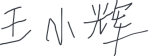 王小辉